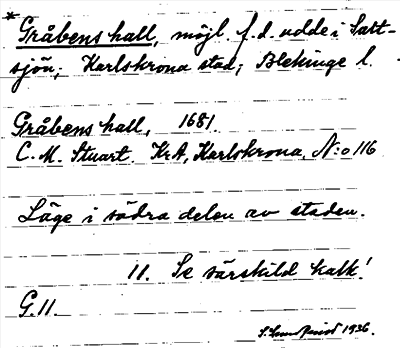 * Gråbens hall, möjl. f.d. udde i Salt-
sjön; Karlskrona stad; Blekinge l.
Gråbens hall, 1681.
C. M. Stuart. KrA, Karlskrona, N:o 116
Läge i södra delen av staden.
11. Se särskild kalk!
G.11.
1936.